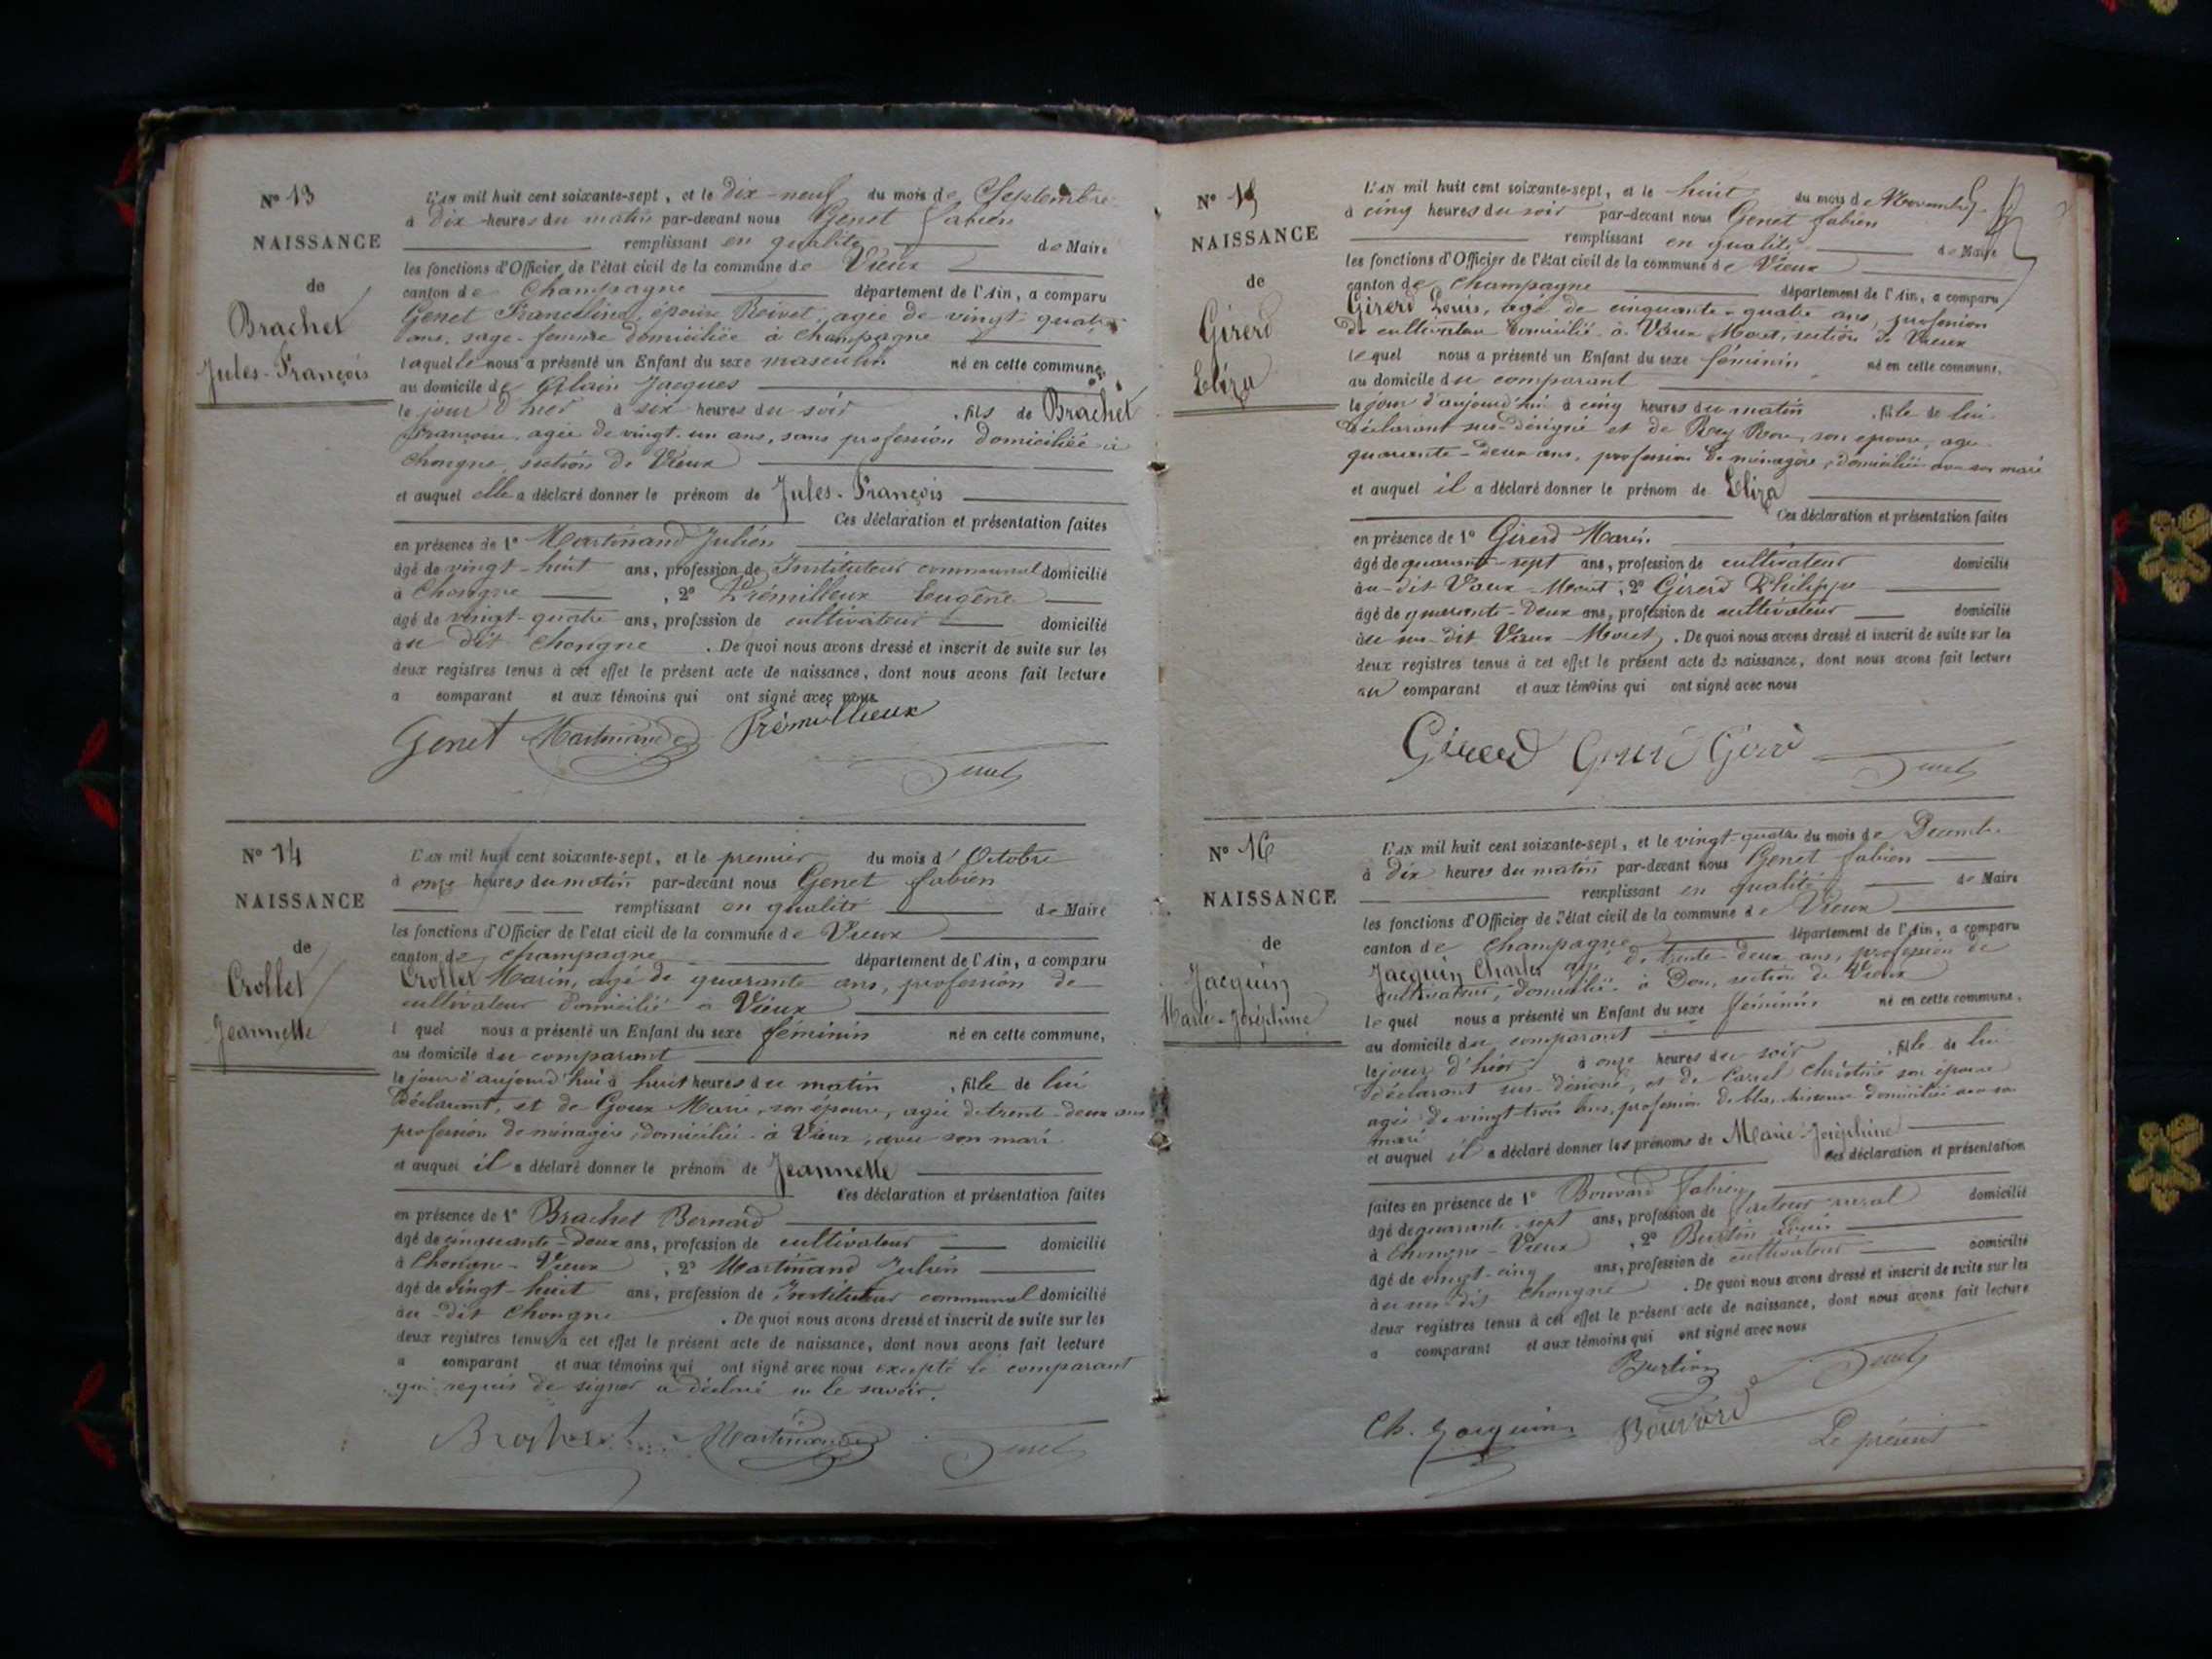 N° 13
NAISSANCE
de
Brachet
Jules-François
L'AN mil huit cent soixante-sept, et le dix-neuf du mois de Septembre
à dix heures du matin par-devant nous Genet fabien
remplissant en qualité de Maire
les fonctions d'Officier de l'état civil de la commune de Vieux
canton de Champagne département de l'Ain, a comparu
Genet Franceline, épouse Reivet, agée de vingt-quatre
ans, sage-femme domiciliée à Champagne
laquelle nous a présenté un Enfant du sexe masculin né en cette commune,
au domicile de Jacques
le jour d'hier à six heures du soir, fils de Brachet
françoise, agée de vingt-un ans, sans profession domiciliée à
Chongne, section de Vieux
et auquel elle a déclaré donner le prénom de Jules-François
Ces déclaration et présentation faites
en présence de 1° Martinand Julien
âgé de vingt-huit ans, profession de Instituteur communal domicilié
à Chongne, 2° Prémilleux Eugène
âgé de vingt-quatre ans, profession de cultivateur domicilié
au dit Chongne. De quoi nous avons dressé et inscrit de suite sur les
deux registres tenus à cet effet le présent acte de naissance, dont nous avons fait lecture
a comparant et aux témoins qui ont signé avec nous
Genet Martinand Prémillieux
Genet
N° 14
NAISSANCE
de
Crollet
Jeannette
L'AN mil huit cent soixante-sept, et le premier du mois d'Octobre
à onze heures du matin par-devant nous Genet fabien
remplissant en qualité de Maire
les fonctions d'Officier de l'état civil de la commune de Vieux
canton de Champagne département de l'Ain, a comparu
Crollet Marin, agé de quarante ans, profession de
cultivateur domicilié à Vieux
l quel nous a présenté un Enfant du sexe féminin né en cette commune,
au domicile du comparant
le jour d'aujourd'hui à huit heures du matin, fille de lui
déclarant, et de Goux Marie, son épouse, agée de trente-deux ans
profession de ménagère, domiciliée à Vieux, avec son mari
et auquel il a déclaré donner le prénom de Jeannette
Ces déclaration et présentation faites
en présence de 1° Brachet Bernard
âgé de cinquante-deux ans, profession de cultivateur domicilié
à Chongne-Vieux, 2° Martinand Julien
âgé de vingt-huit ans, profession de Instituteur communal domicilié
au-dit Chongne. De quoi nous avons dressé et inscrit de suite sur les
deux registres tenus à cet effet le présent acte de naissance, dont nous avons fait lecture
a comparant et aux témoins qui ont signé avec nous excepté le comparant
qui requis de signer a déclaré ne le savoir.
Brachet Martinand Genet
N° 15
NAISSANCE
de
Girerd
Eliza
L'AN mil huit cent soixante-sept, et le huit du mois de Novembre
à cinq heures du soir par-devant nous Genet fabien
remplissant en qualité de Maire
les fonctions d'Officier de l'état civil de la commune de Vieux
canton de Champagne département de l'Ain, a comparu
Girerd Louis, agé de cinquante-quatre ans, profession
de cultivateur domicilié à Vaux-Moret, section de Vieux
lequel nous a présenté un Enfant du sexe féminin né en cette commune,
au domicile du comparant
le jour d'aujourd'hui à cinq heures du matin, fille de lui
déclarant sus-désigné et de Rey Rose, son épouse, agée
quarante-deux ans, profession de ménagère, domiciliée avec son mari
et auquel il a déclaré donner le prénom de Eliza
Ces déclaration et présentation faites
en présence de 1° Girerd Marin
âgé de quarante-sept ans, profession de cultivateur domicilié
au-dit Vaux-Moret, 2° Girerd Philippe
âgé de quarante-deux ans, profession de cultivateur domicilié
au sus-dit Vaux-Moret. De quoi nous avons dressé et inscrit de suite sur les
deux registres tenus à cet effet le présent acte de naissance, dont nous avons fait lecture
au comparant et aux témoins qui ont signé avec nous
Girerd Girerd Girerd Genet
N° 16
NAISSANCE
de
Jacquin
Marie-Joséphine
L'AN mil huit cent soixante-sept, et le vingt-quatre du mois de Décembre
à dix heures du matin par-devant nous Genet fabien
remplissant en qualité de Maire
les fonctions d'Officier de l'état civil de la commune de Vieux
canton de Champagne département de l'Ain, a comparu
Jacquin Charles agé de trente-deux ans, profession de
cultivateur, domicilié à Don, section de Vieux
lequel nous a présenté un Enfant du sexe féminin né en cette commune,
au domicile du comparant
le jour d'hier à onze heures du soir, fille de lui
déclarant sus-désigné, et de Christine son épouse
agée de vingt-trois ans, profession de blanchisseuse domiciliée avec son
mari
et auquel il a déclaré donner les prénoms de Marie-Joséphine
Ces déclaration et présentation
faites en présence de 1° Bouvard fabien
âgé de quarante-sept ans, profession de facteur rural domicilié
à Chongne-Vieux, 2° Burtin Louis
âgé de vingt-cinq ans, profession de cultivateur domicilié
au sus-dit Chongne. De quoi nous avons dressé et inscrit de suite sur les
deux registres tenus à cet effet le présent acte de naissance, dont nous avons fait lecture
a comparant et aux témoins qui ont signé avec nous
Burtin Genet
Ch. Jacquin Bouvard
Le présent